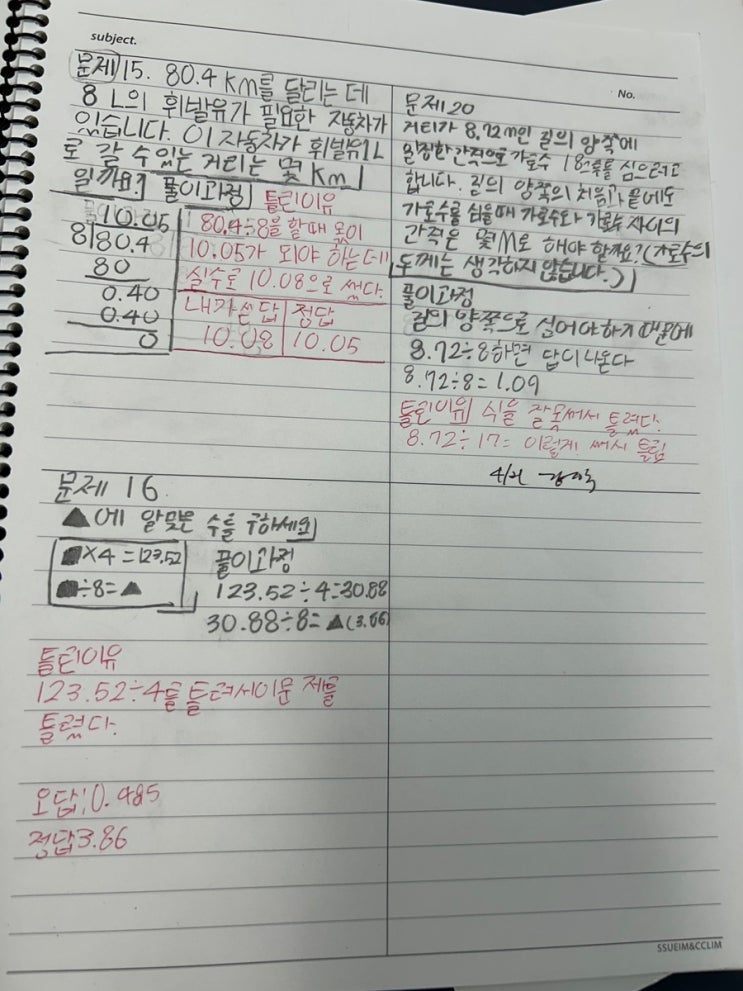 subject.
문제15. 80.4 km를 달리는 데
8 L의 휘발유가 필요한 자동차가
있습니다. 이 자동차가 휘발유1L
로 갈 수 있는 거리는 몇 km
일까요? 풀이과정 틀린이유
10.05
8 80.4
80
0.40
0.40
0
80.4÷8을 할때 몫이
10.05가 되야 하는데
실수로 10.08으로 썼다.
내가쓴답 정답
10.08 10.05
문제 16.
▲에 알맞은 수를 구하세요
■×4=123.52
■÷8=▲
풀이과정
123.52÷4=30.88
30.88÷8=▲
틀린이유
123.52÷4를 틀려서이문제를
틀렸다.
오답:0.485
정답3.86
No.
문제20
거리가 8.72m인 길의 양쪽에
일정한간격으로 가로수 18그루를 심으려고
합니다. 길의 양쪽의 처음과 끝에도
가로수를 심을때 가로수와 가로수 사이의
간격은 몇M로 해야 할까요?(가로수의
두께는 생각하지 않습니다.)
풀이과정
길의 양쪽으로 심어야하기 때문에
8.72÷8하면 답이나온다
8.72÷8=1.09
틀린이유 식을 잘못써서 틀렸다.
8.72÷17= 이렇게 써서 틀림
SSUEIM&CCLIM